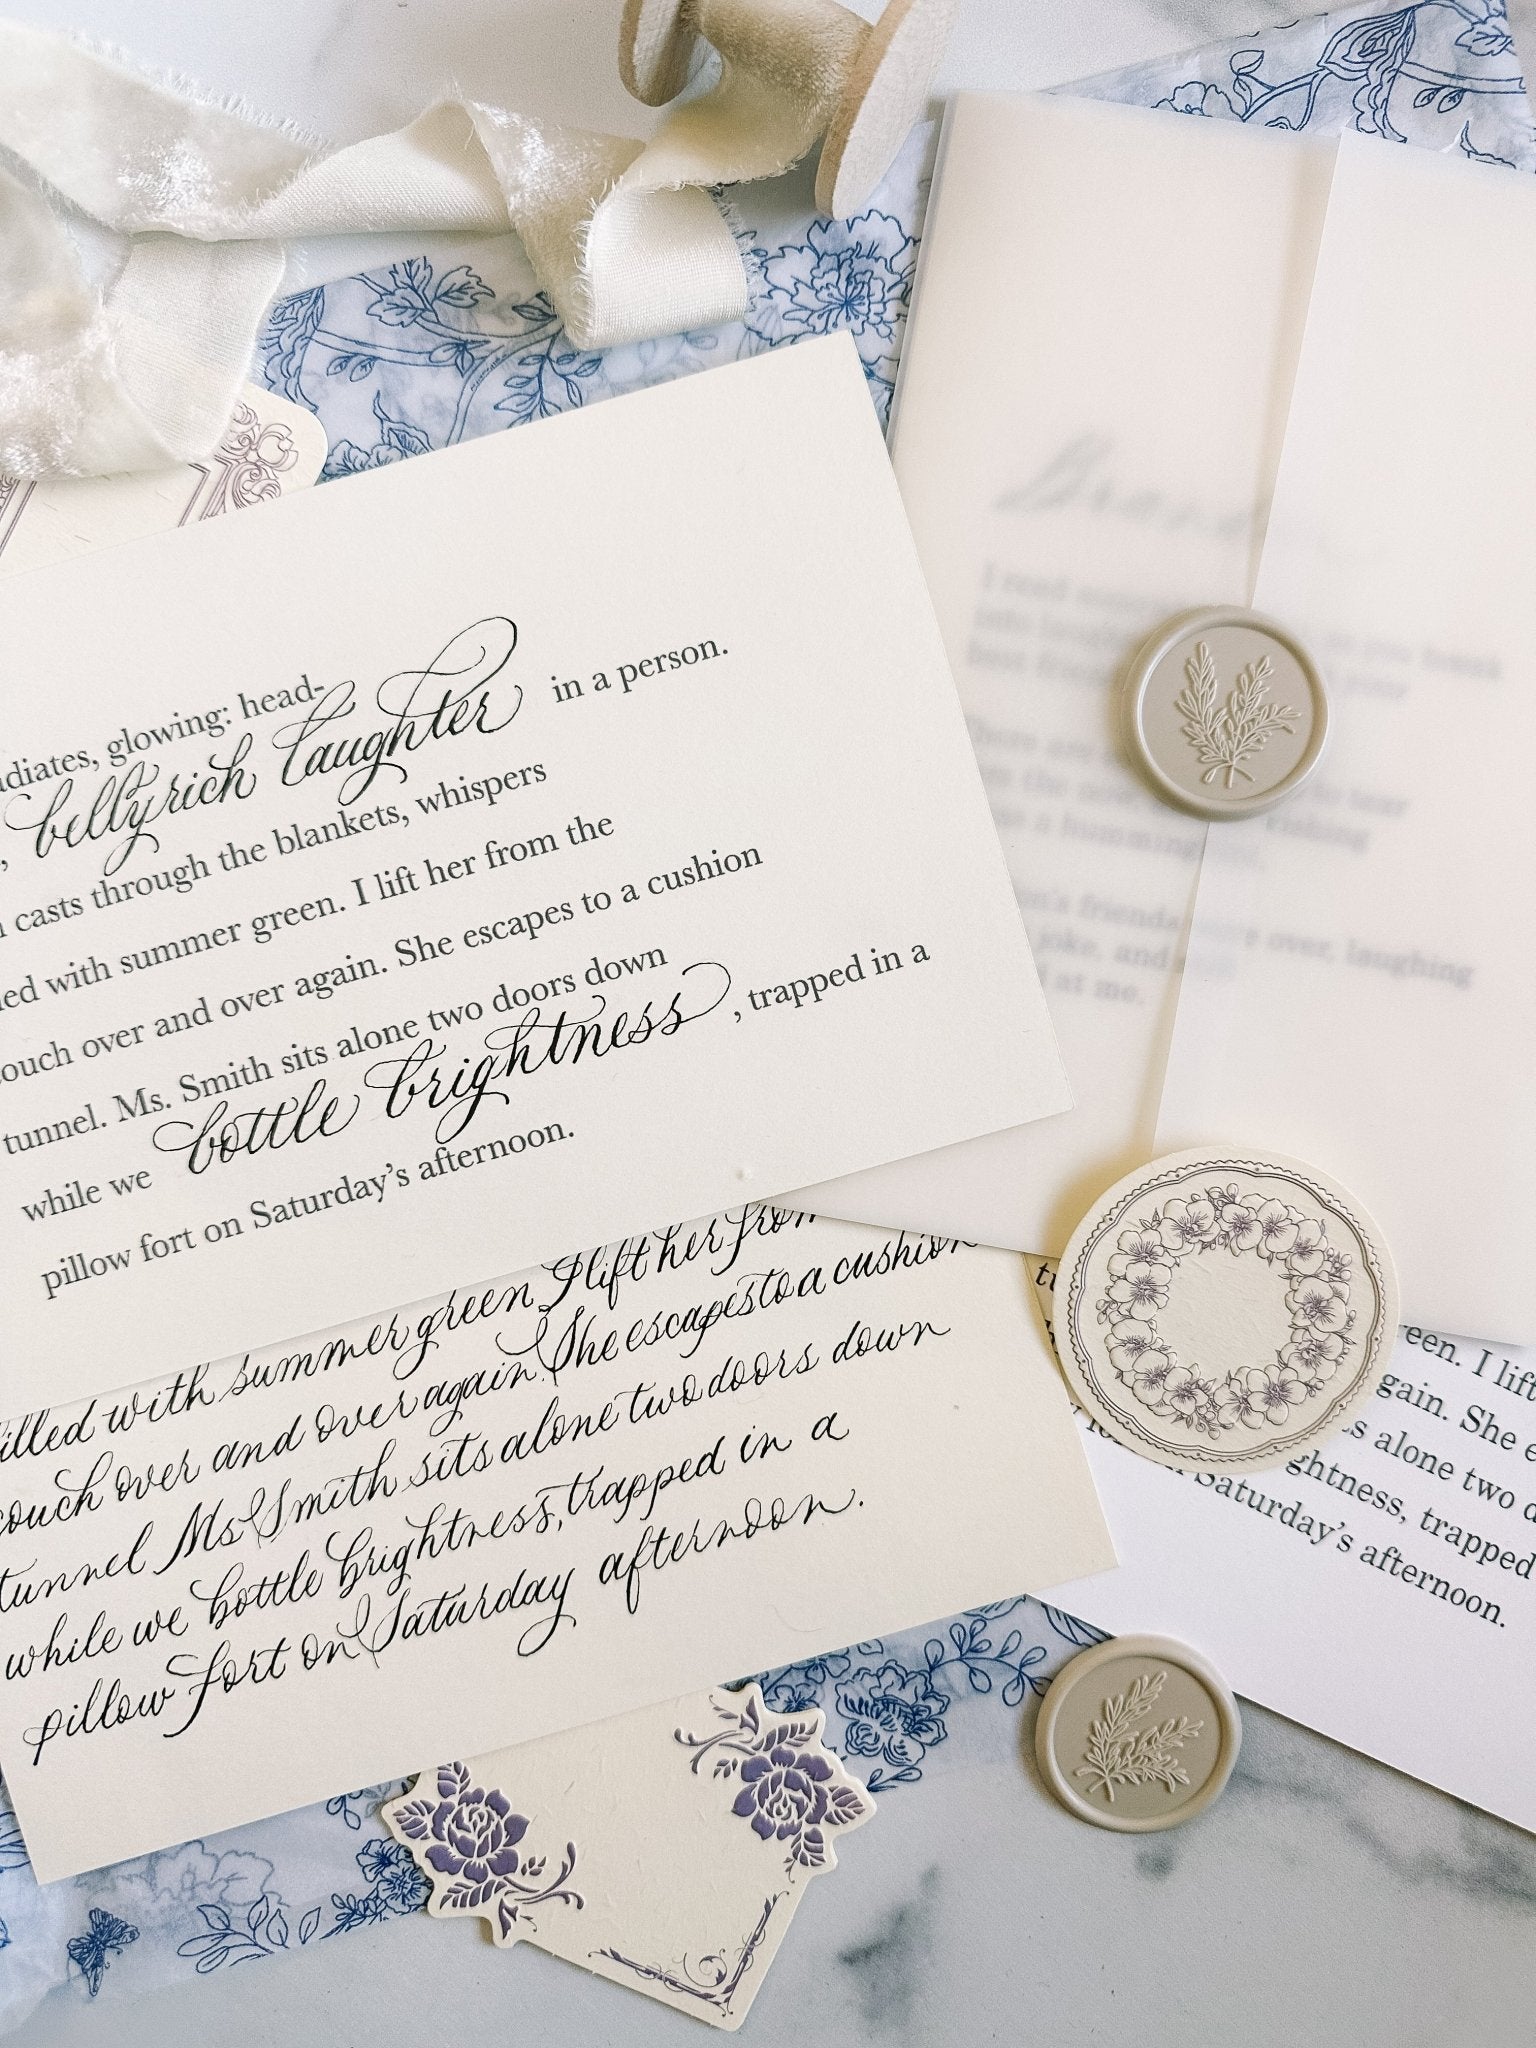 adiates, glowing: head-
, bellyrich laughter in a person.
casts through the blankets, whispers
led with summer green. I lift her from the
ouch over and over again. She escapes to a cushion
tunnel. Ms. Smith sits alone two doors down
while we bottle brightness, trapped in a
pillow fort on Saturday's afternoon.
filled with summer green I lift her from
couch over and over again. She escapes to a cushion
tunnel Ms Smith sits alone two doors down
while we bottle brightness, trapped in a
pillow fort on Saturday afternoon.
I read
into
best
a hummingbird,
friends over, laughing
joke, and
at me.
een. I lift
gain. She e
s alone two d
ghtness, trapped
Saturday's afternoon.